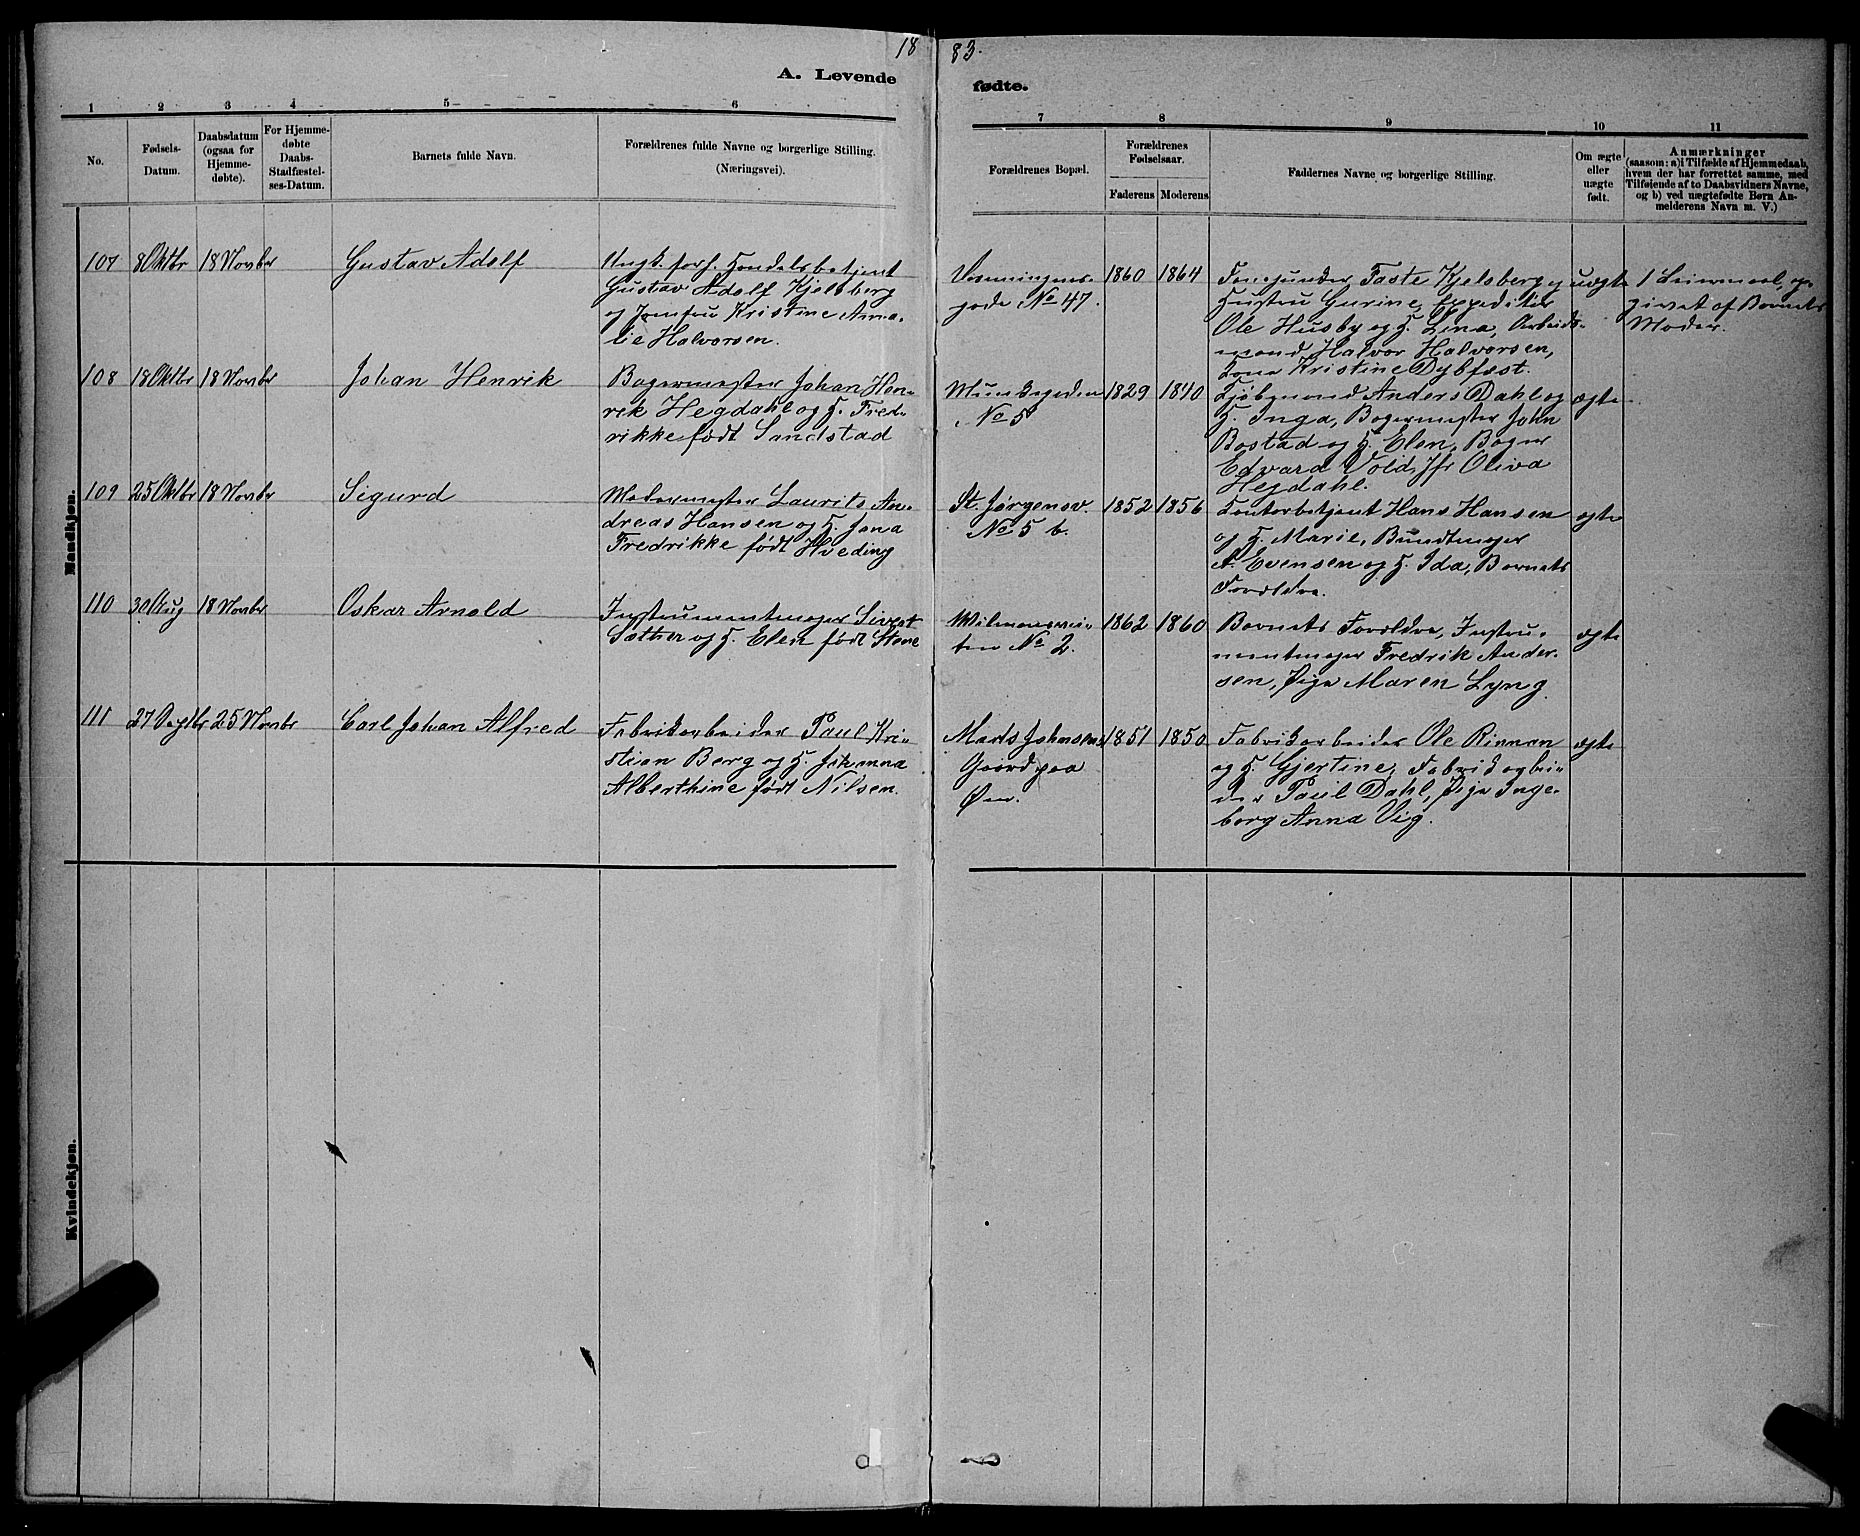 18 83.
A. Levende fødte.
1 2 3 4 5 6 7 8 9 10 11
No.
Fødsels-
Datum.
Daabsdatum
(ogsaa for
Hjemme-
døbte).
For Hjemme-
døbte
Daabs-
Stadfæstel-
ses-Datum.
Barnets fulde Navn.
Forældrenes fulde Navne og borgerlige Stilling.
(Næringsvei).
Forældrenes Bopæl.
Forældrenes
Fødselsaar.
Faderens Moderens
Faddernes Navne og borgerlige Stilling.
Om ægte
eller
uægte
født.
Anmærkninger
(saasom: a) i Tilfælde af Hjemmedaab,
hvem der har forrettet samme, med
Tilføiende af to Daabsvidners Navne,
og b) ved uægtefødte Børn An-
melderens Navn m. V.)
Mandkjøn.
107 8 Oktbr 18 Novbr Gustav Adolf
Ungk. forh. Handelsbetjent
Gustav Adolf Kjelsberg
og Jomfru Kristine Ama-
lie Halvorsen.
gade No 47.
1860 1864
Faste Kjelsberg og
Hustru Gurine, Expeditør
Ole Husby og H. Lina, Arbeids-
mand Halvor Halvorsen,
Kone Kristine Dybfest.
uægte
1 Leiermaal, op-
givet af Barnets
Moder.
108 18 Oktbr 18 Novbr Johan Henrik
Bagermester Johan Hen-
rik Hegdahl og H. Fred-
rikke født Sandstad
Munkegaden
No 5
1829 1840
Kjøbmand Anders Dahl og
H. Inga, Bagermester John
Bostad og H. Elen, Bager
Edvard Vold, Jfr Oliva
Hegdahl.
ægte
109 25 Oktbr 18 Novbr Sigurd
Malermester Laurits An-
dreas Hansen og H. Jona
Fredrikke født Hveding
St. Jørgensv.
No 5 b.
1852 1856
Kontorbetjent Hans Hansen
og H. Marie, Bundtmager
A. Evensen og H. Ida, Barnets
Forældre.
ægte
110 30 Aug 18 Novbr Oskar Arnold
Instrumentmager Sivert
Sather og H. Elen født Stene
No 2.
1862 1860
Barnets Forældre, Instru-
mentmager Fredrik Ander-
sen, Pige Maren Lyng.
ægte
111 27 Septbr 25 Novbr Carl Johan Alfred
Fabrikarbeider Paul Kri-
stian Berg og H. Johanna
Alberthine født Nilsen.
Mads Johnsens
Gaard paa
Øen.
1851 1850
Fabrikarbeider Ole Rinnan
og H. Gjertine, Fabrikarbei-
der Paul Dahl, Pige Inge-
borg Anna Vig.
ægte
Kvindekjøn.